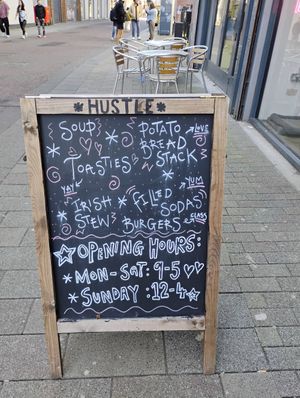 HUSTLE
SOUP
POTATO BREAD STACK
LOVE
TOASTIES
YAY!
YUM
IRISH STEW
FILLED SODAS
BURGERS
CLASS
OPENING HOURS:
MON-SAT: 9-5
SUNDAY: 12-4